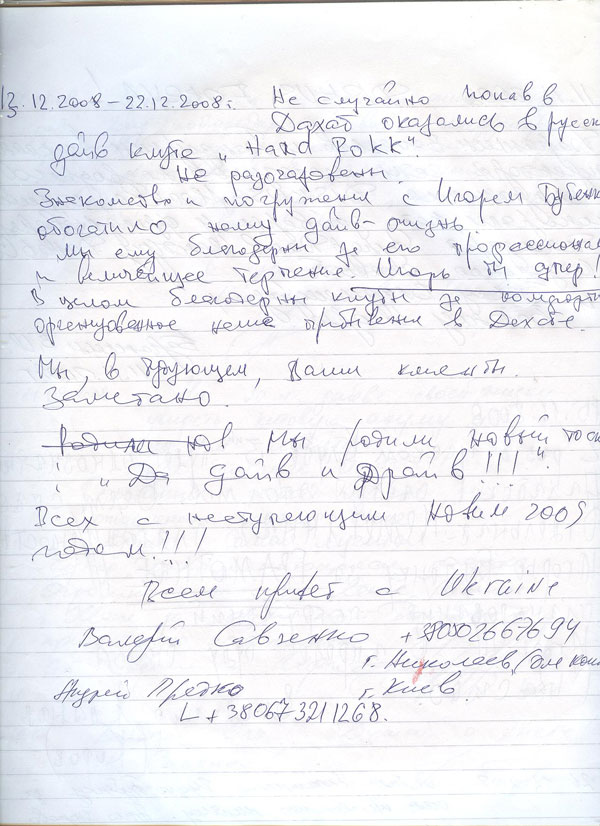 13.12.2008 – 22.12.2008г. Не случайно попав в
Дахаб оказались в русск
дайв клубе „Hard Rokk“.
Не разочарованы.
Знакомство и погружения с Игорем Бубен
обогатило нашу дайв-жизнь.
Мы ему благодарны за его профессионал
и величайшее терпение. Игорь ты супер!
В целом благодарны клубу за комфортн
организованное наше пребывание в Дахабе.
Мы, в будующем, Ваши клиенты.
Заметано.
Родили нов Мы родили новый тос
! „Да дайв и Драйв!!!“.
Всех с наступающим Новым 2009
годом!!!
Всем привет с Ukraine
Валерий Савченко +380502667694
г. Николаев,
Андрей Предко г. Киев.
+380673211268.